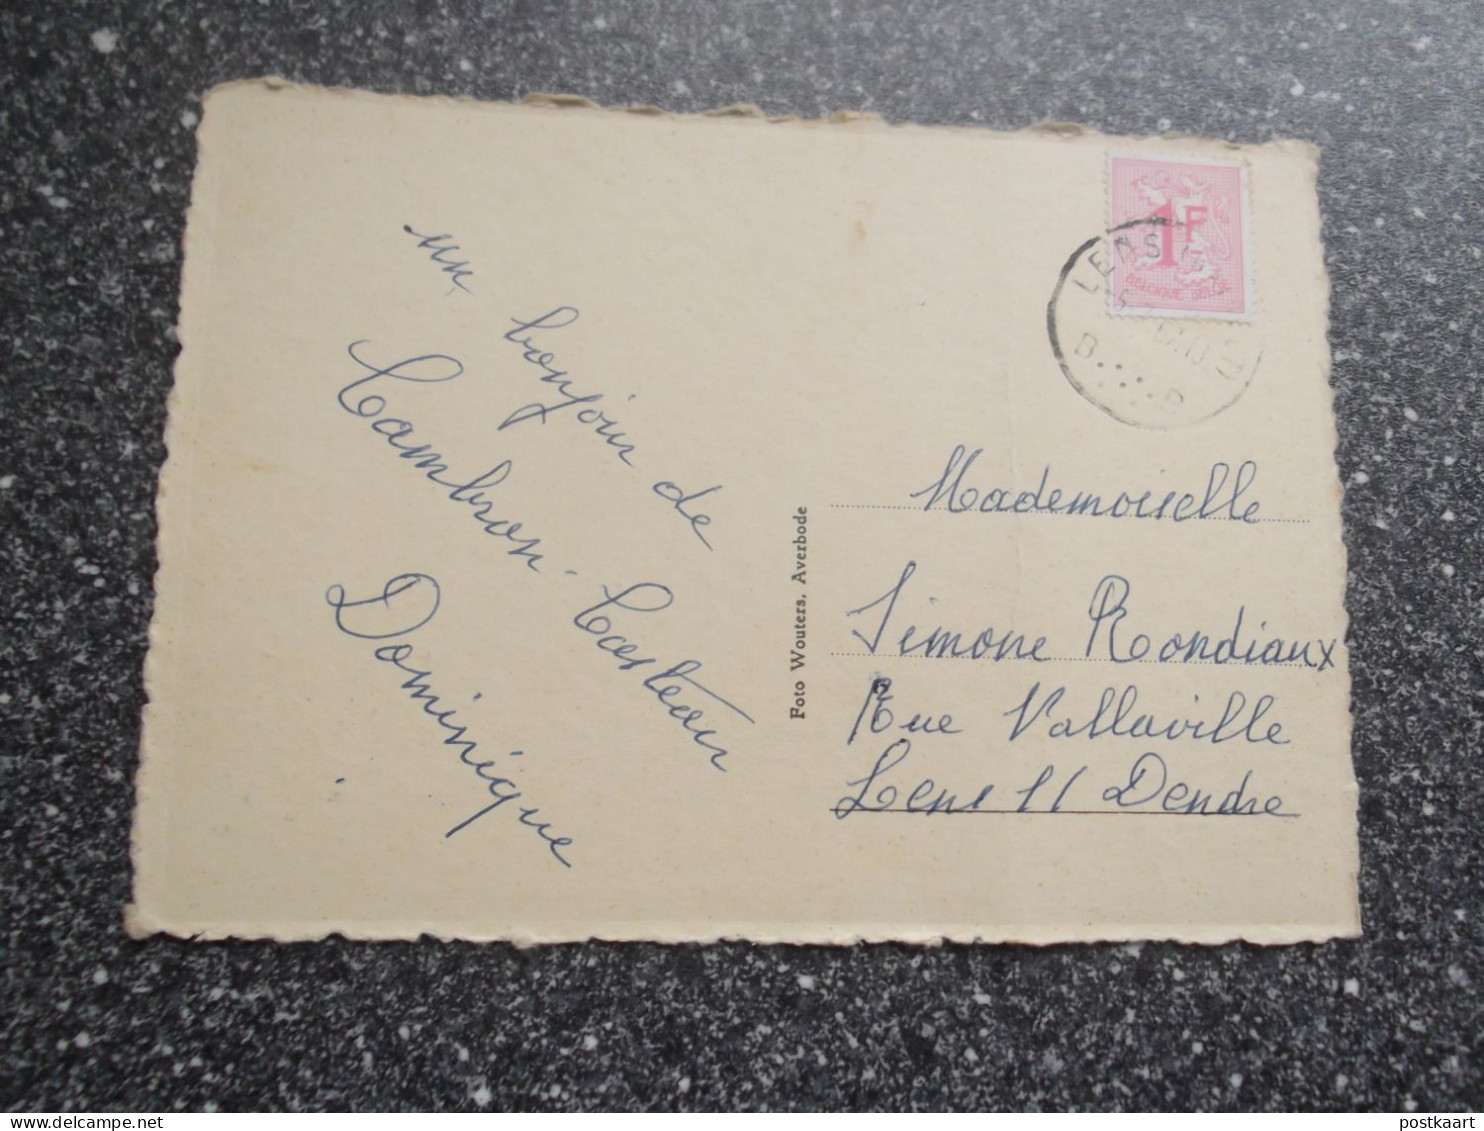 un bonjour de
Cambron-Casteau
Dominique
Foto Wouters, Averbode
1F
BELGIQUE BELGIE
LENS
B B
Mademoiselle
Simone Rondiaux
Rue Vallaville
Lens s/ Dendre
postkaart